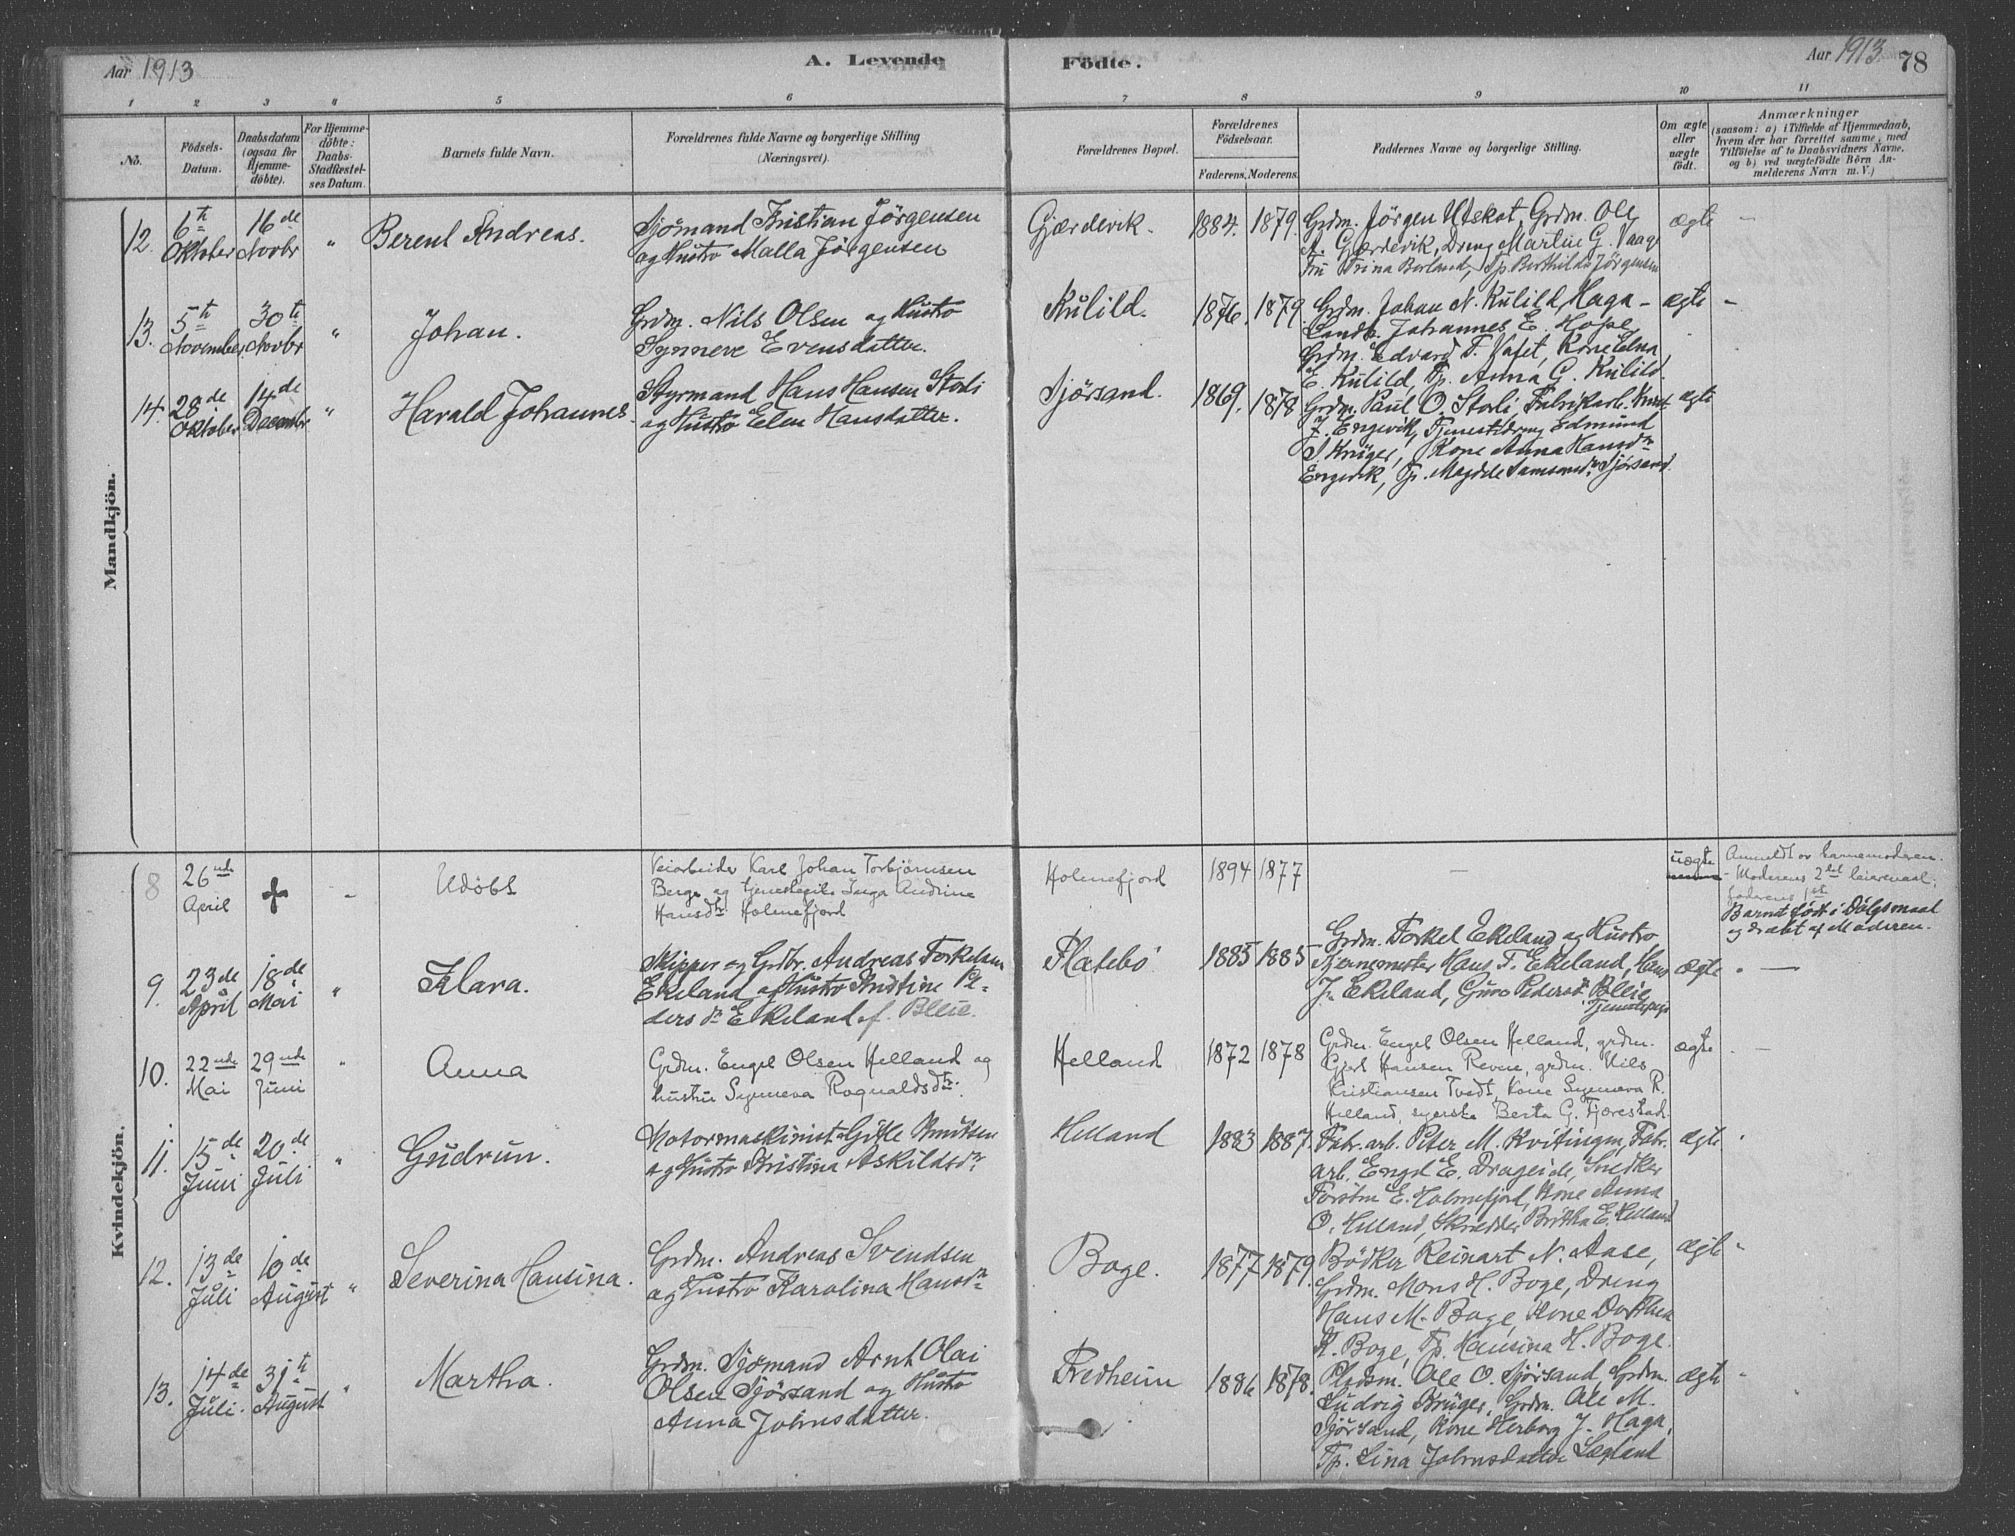 Aar 1913
A. Levende Födte.
Aar 1913
78
1 2 3 4 5 6 7 8 9 10 11
No.
Födsels-Datum.
Daabsdatum (ogsaa for Hjemme-döbte).
For Hjemme-döbte: Daabs-Stadfæstel-ses Datum.
Barnets fulde Navn.
Forældrenes fulde Navne og borgerlige Stilling (Næringsvei).
Forældrenes Bopæl.
Forældrenes Födselsaar.
Faderens. Moderens.
Faddernes Navne og borgerlige Stilling.
Om ægte eller uægte födt.
Anmærkninger
(saasom: a) i Tilfælde af Hjemmedaab,
hvem der har forrettet samme, med
Tilföielse af to Daabsvidners Navne,
og b) ved uægtefödte Börn An-
melderens Navn m. V.)
Mandkjön.
12. 6te Oktober 16de Novbr " Berent Andreas.
Sjömand Kristian Jörgensen
og Hustro Malla Jörgensen
Gjærdevik. 1884. 1879.
Grdm. Jörgen Utskot, Grdm. Ole
A. Gjærdevik, Dreng Martin G. Vaage
Fru Trina Borland, Tp. Berthilda Jörgensen
ægte –
13. 5te November 30te Novbr " Johan.
Grdm. Nils Olsen og Hustro
Synneve Evensdatter.
Kulild. 1876. 1879
Grdm. Johan N. Kulild, Haga –
Landh. Johannes E. Hope,
Grdm. Edvard T. , Kone Edna
E. Kulild, Tp. Anna G. Kulild.
ægte –
14. 28de Oktober 14de Decembr " Harald Johannes.
Styrmand Hans Hansen Storli
og Hustro Elen Hansdatter.
Sjörsand. 1869. 1878
Grdm. Paul O. Storli, Fabrikarb. Knut
J. Engevik, Tjenestedreng Edmund
S Krüger, Kone Anna Hansdtr
Engevik, Tp. Magdele Samsonsdtr Sjörsand.
ægte
Kvindekjön.
8 26nde April + – Udöbt
Veiarbeider Karl Johan Torbjörnsen
Berge og tjenestepike Inga Andrine
Hansdtr Holmefjord
Holmefjord 1894 1877 –
uægte
Anmeldt av barnemoderen.
– Moderens 2det leiermaal,
faderens 1ste
Barnet födt i Dölgsmaal
og dræbt af Moderen.
9. 23de April 18de Mai " Klara.
Skipper og Grdbr. Andreas Torkelsen
Ekeland og Hustro Andtine Pe-
dersdtr Ekeland f. Bleie.
Flatebö 1885 1885
Grdm. Torkel Ekeland og Hustro
Stjernemester Hans T. Ekeland, Hans
J. Ekeland, Guro Pedersdtr Bleie
Tjenestepige
ægte " —
10. 22nde Mai 29nde Juni " Anna
Grdm. Engel Olsen Helland og
hustru Synneva Rognaldsdtr.
Helland 1872 1878
Grdm. Engel Olsen Helland, grdm.
Gjert Hansen Revne, grdm. Nils
Kristiansen Tvedt, Kone Synneva R.
Helland, syerske Berta G. Tjorestad.
ægte –
11. 15de Juni 20de Juli " Gudrun.
Motormaskinist Gitle Knutsen
og Hustro Kristina Askildsdtr.
Helland 1883 1887.
Fabr. arb. Peter M. Kvitingen, Fabr.
arb. Engel E. Drageide, Snedker
Torstein E. Holmefjord, Kone Anna
O. Helland, Skrædder Britha E. Helland
ægte "
12. 13de Juli 10de August " Severina Hansina.
Grdm. Andreas Svendsen
og Hustro Karolina Hansdtr
Boge. 1877 1879.
Bödker Reinart N. Aase,
Grdm. Mons H. Boge, Dreng
Hans M. Boge, Kone Dorthea
K. Boge, Tp. Hansina H. Boge.
ægte "
13. 14de Juli. 31te August " Martha.
Grdm. Sjömand Arnt Olai
Olsen Sjörsand og Hustro
Anna Johnsdatter.
Fredheim 1886 1878.
Pladsm. Ole O. Sjörsand, Grdm.
Ludvig Krüger, Grdm. Ole M.
Sjörsand, Kone Herborg J. Haga,
Tp. Lina Johnsdatter Lægland
ægte "